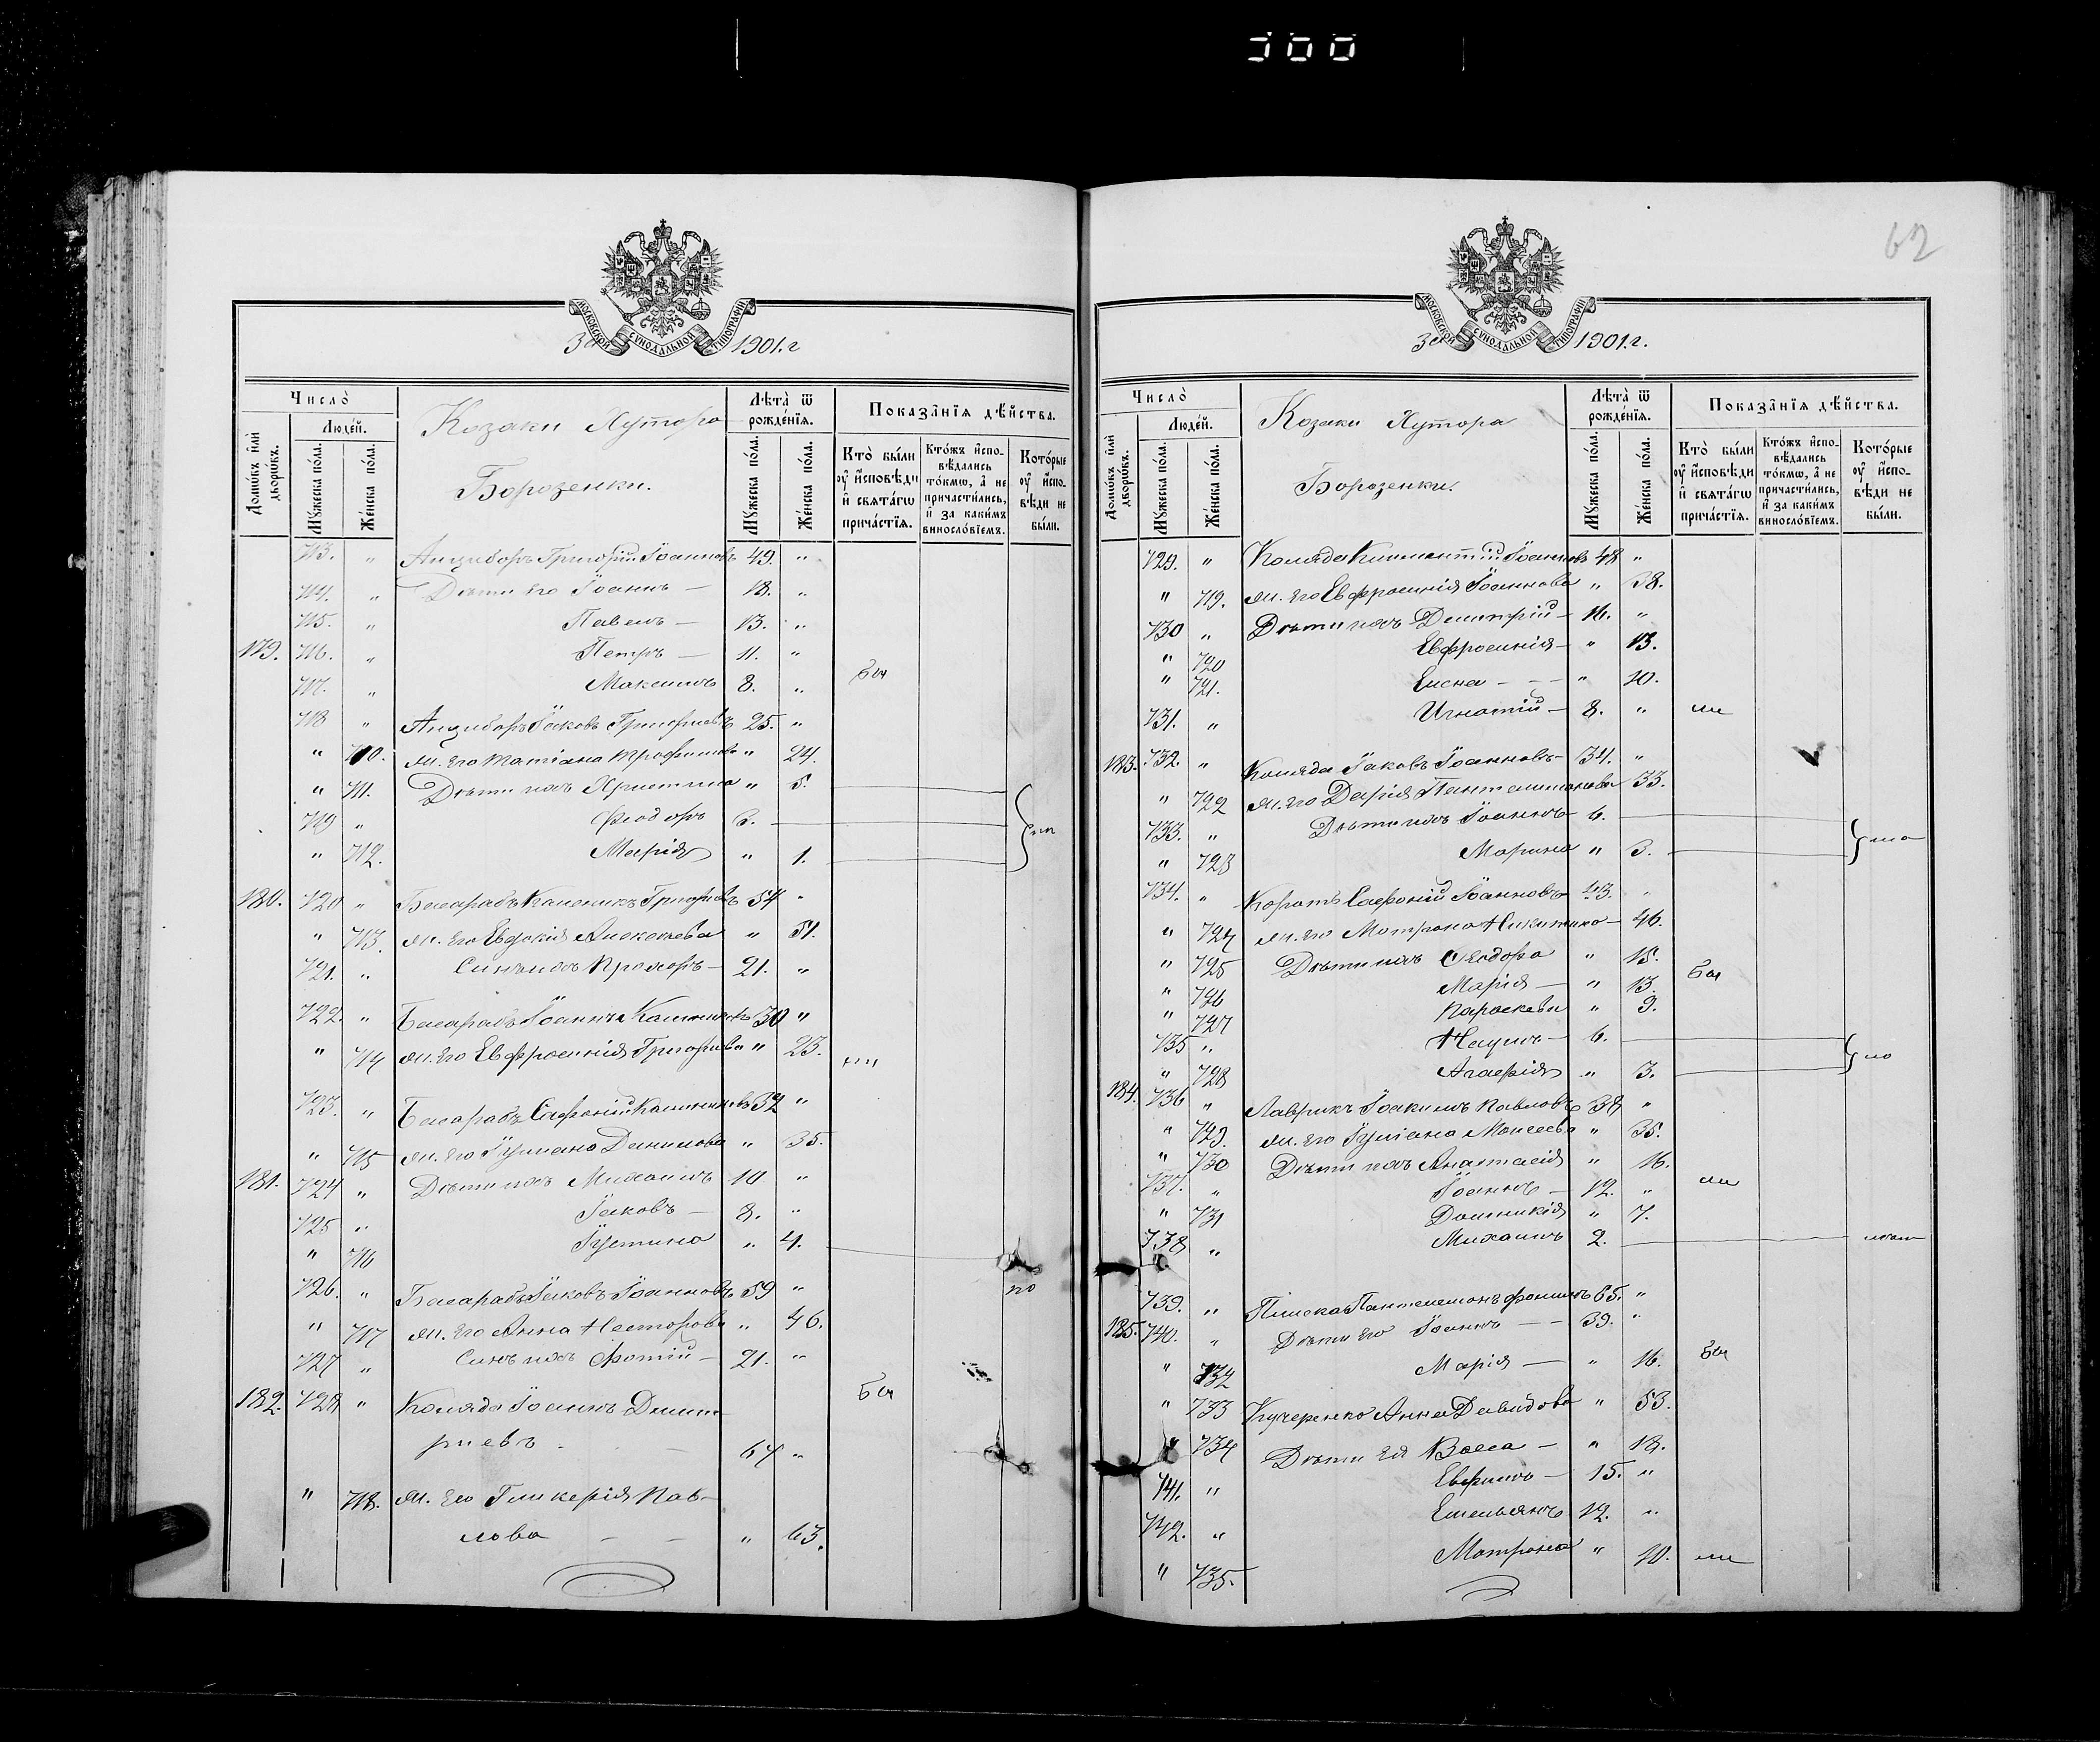 62
МОСКОВСКОЙ СУНОДАЛЬНОЙ ТИПОГРАФІИ
За 1901. г
Число̀
Людéй.
Домѡ́въ и҆лѝ дворѡ́въ.
Мꙋ́жеска по́ла.
Же́нска по́ла.
Козаки Хутора
Борозенки.
Лѣ́та ѿ рожде́нїя.
Мꙋ́жеска по́ла.
Же́нска по́ла.
Показа̑нїя дѣ́йства.
Кто̀ бы́ли ᲂу҆ и҆сповѣди и҆ свята́гѡ прича́стїя.
Кто́жъ и҆сповѣдались то́кмѡ, а҆ не причасти́лись, и҆ за каки́мъ винослóвїемъ.
Кото́рые ᲂу҆ и҆сповѣди не бы́ли.
713. " Анцыборъ Григорій Іоанновъ 49. "
714. " Дѣти его Іоаннъ — 18. "
715. " Павелъ — 13. "
179. 716. " Петръ — 11. "
717. " Максимъ 8. " бы
718 " Анцыборъ Іаковъ Григорьевъ 25. "
" 710. ж. его Татіана Трофимова " 24.
" 711. Дѣти ихъ Христина " 5.
719 " Феодоръ 3.
" 712. Марія " 1.
180. 720 " Басарабъ Калиникъ Григорьевъ 54 "
" 713. ж. его Евдокія Алексѣева " 51.
721. " Синъ ихъ Прохоръ — 21. "
722. " Басарабъ Іоаннъ Калиниковъ 30 "
" 714 ж. его Евфросинія Григорьева " 23.
723. " Басарабъ Софроній Калиниковъ 37 "
" 715 ж. его Іуліана Данилова " 35.
181. 724 " Дѣти ихъ Михаилъ 10 "
725 " Іаковъ — 8. "
" 716 Іустина " 4.
726. " Басарабъ Іаковъ Іоанновъ 59 " по
" 717 ж. его Анна Несторова " 46.
727 " Синъ ихъ Фотій — 21. "
182. 728 " Коляда Іоаннъ Димит- бы
риевъ — 67 "
" 718. ж. его Гликерія Пав-
лова — — " 63.
За 1901. г.
Число̀
Людéй.
Домѡ́въ и҆лѝ дворѡ́въ.
Мꙋ́жеска по́ла.
Же́нска по́ла.
Козаки Хутора
Борозенки.
Лѣ́та ѿ рожде́нїя.
Мꙋ́жеска по́ла.
Же́нска по́ла.
Показа̑нїя дѣ́йства.
Кто̀ бы́ли ᲂу҆ и҆сповѣди и҆ свята́гѡ прича́стїя.
Кто́жъ и҆сповѣдались то́кмѡ, а҆ не причасти́лись, и҆ за каки́мъ винослóвїемъ.
Кото́рые ᲂу҆ и҆сповѣди не бы́ли.
729. " Коляда Климентій Іоанновъ 48 "
" 719. ж. его Евфросинія Іоаннова " 38.
730 " Дѣти ихъ Димитрій — 16. "
" 720 Евфросинія — " 13.
" 721. Елена — — — " 10.
731. " Игнатій — 8. " ли
183. 732 " Коляда Іаковъ Іоанновъ — 34. "
" 722 ж. его Дарія Пантелимонова 33.
733. " Дѣти ихъ Іоаннъ 6.
" 723 Марина " 3.
734. " Коротъ Софроній Іоанновъ 43. "
" 724 ж. его Матрона Никитина — 46.
" 725 Дѣти ихъ Феодора " 15.
" 726 Марія — " 13. бы
" 727 Параскева " 9.
735 " Наумъ — 6.
" 728 Агафія " 3.
184. 736 " Лаврикъ Іоакимъ Павловъ 38 "
" 729. ж. его Іуліана Моисеева " 35.
" 730 Дѣти ихъ Анастасія " 16.
737. " Іоаннъ — 12. " ли
" 731 Домникія " 7.
738 " Михаилъ 2.
739. " Пантелеимонъ Фоминъ 65. "
185. 740. " Дѣти его Іоаннъ — — 39. "
" 732 Марія — " 16. бы
" 733 Кучеренко Анна Давидова " 53.
" 734 Дѣти ея Васса — " 18.
741. " Евфимъ — 15. "
742. " Емельянъ 12. "
" 735. Матрона " 10. ли